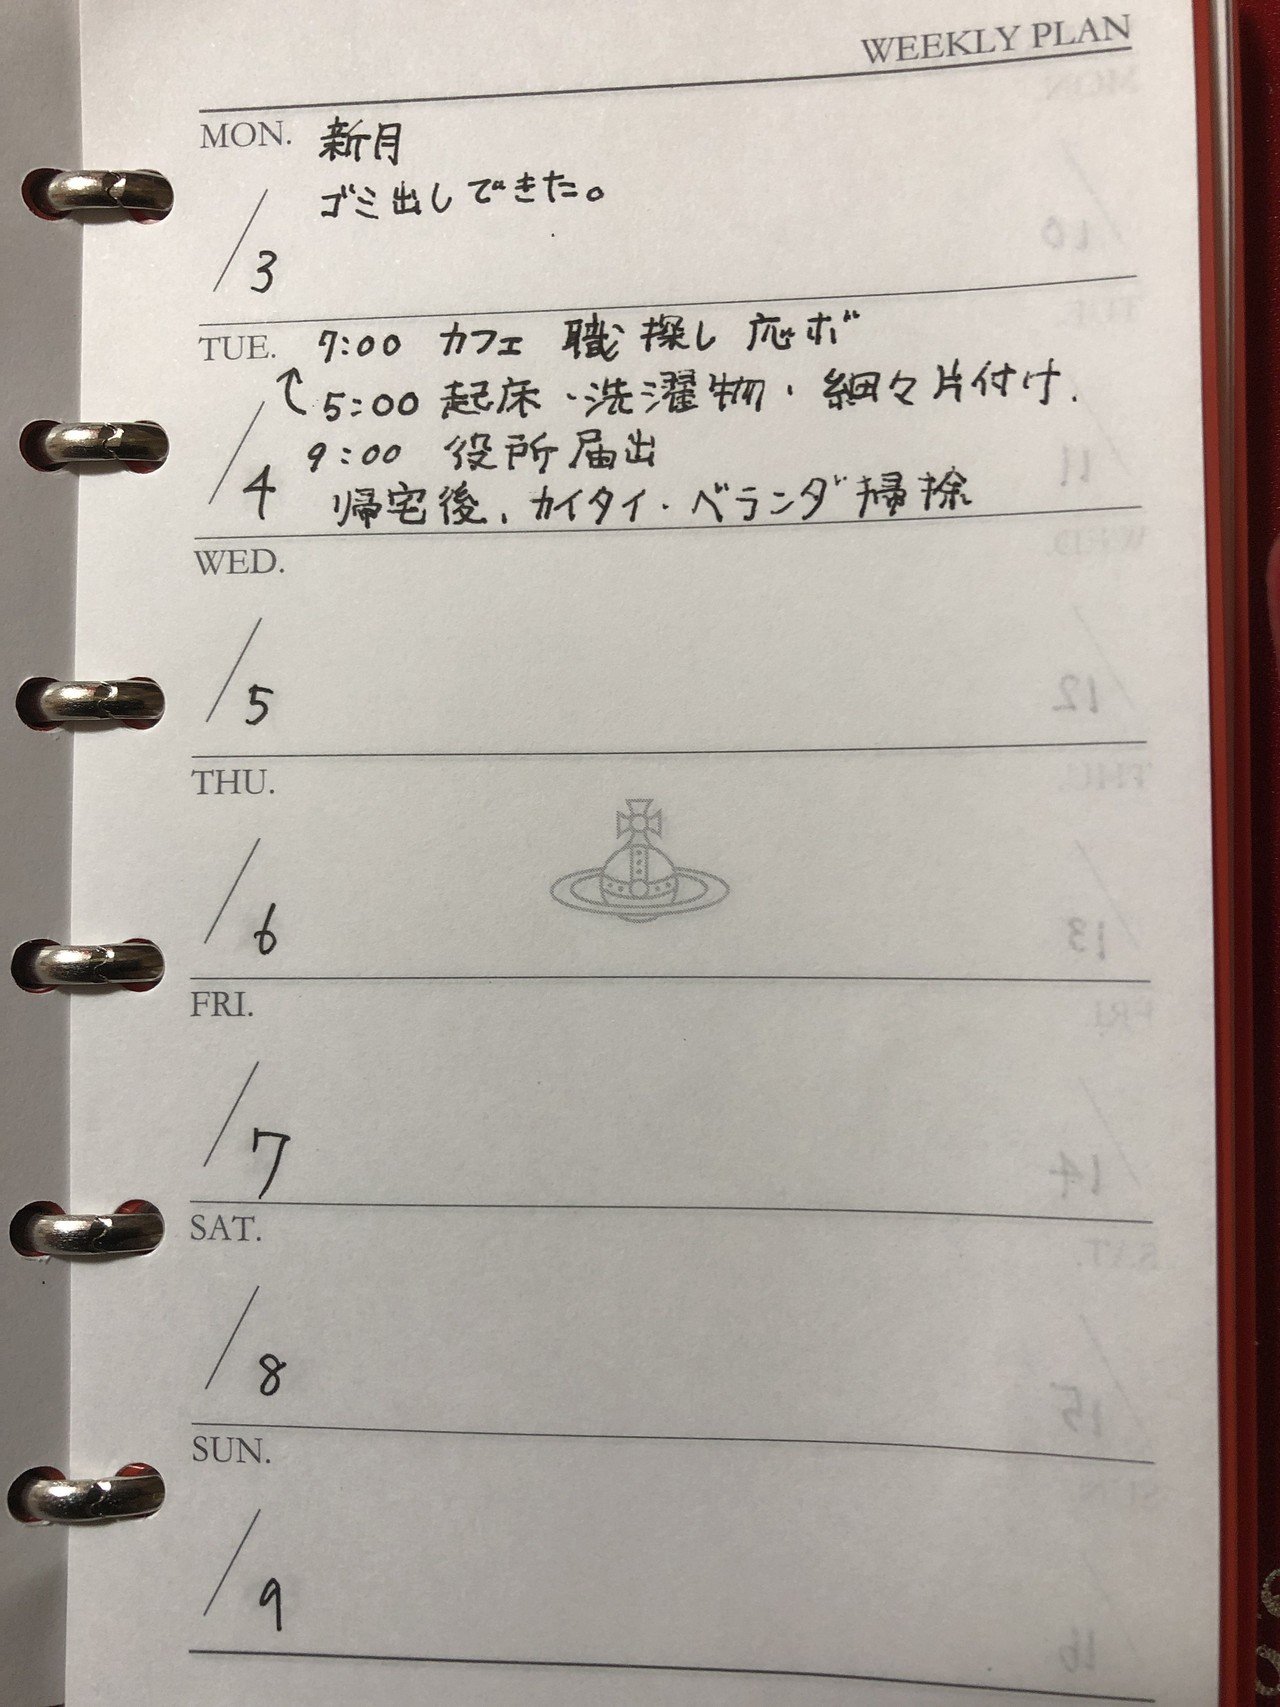 WEEKLY PLAN
MON. 新月
ゴミ出しできた。
/3
TUE. 7:00 カフェ 職探し 応ボ
5:00 起床・洗濯物・細々片付け.
9:00 役所届出
/4
帰宅後、カイタイ・ベランダ掃除
WED.
/5
THU.
/6
FRI.
/7
SAT.
/8
SUN.
/9
10
11
12
13
14
15
16